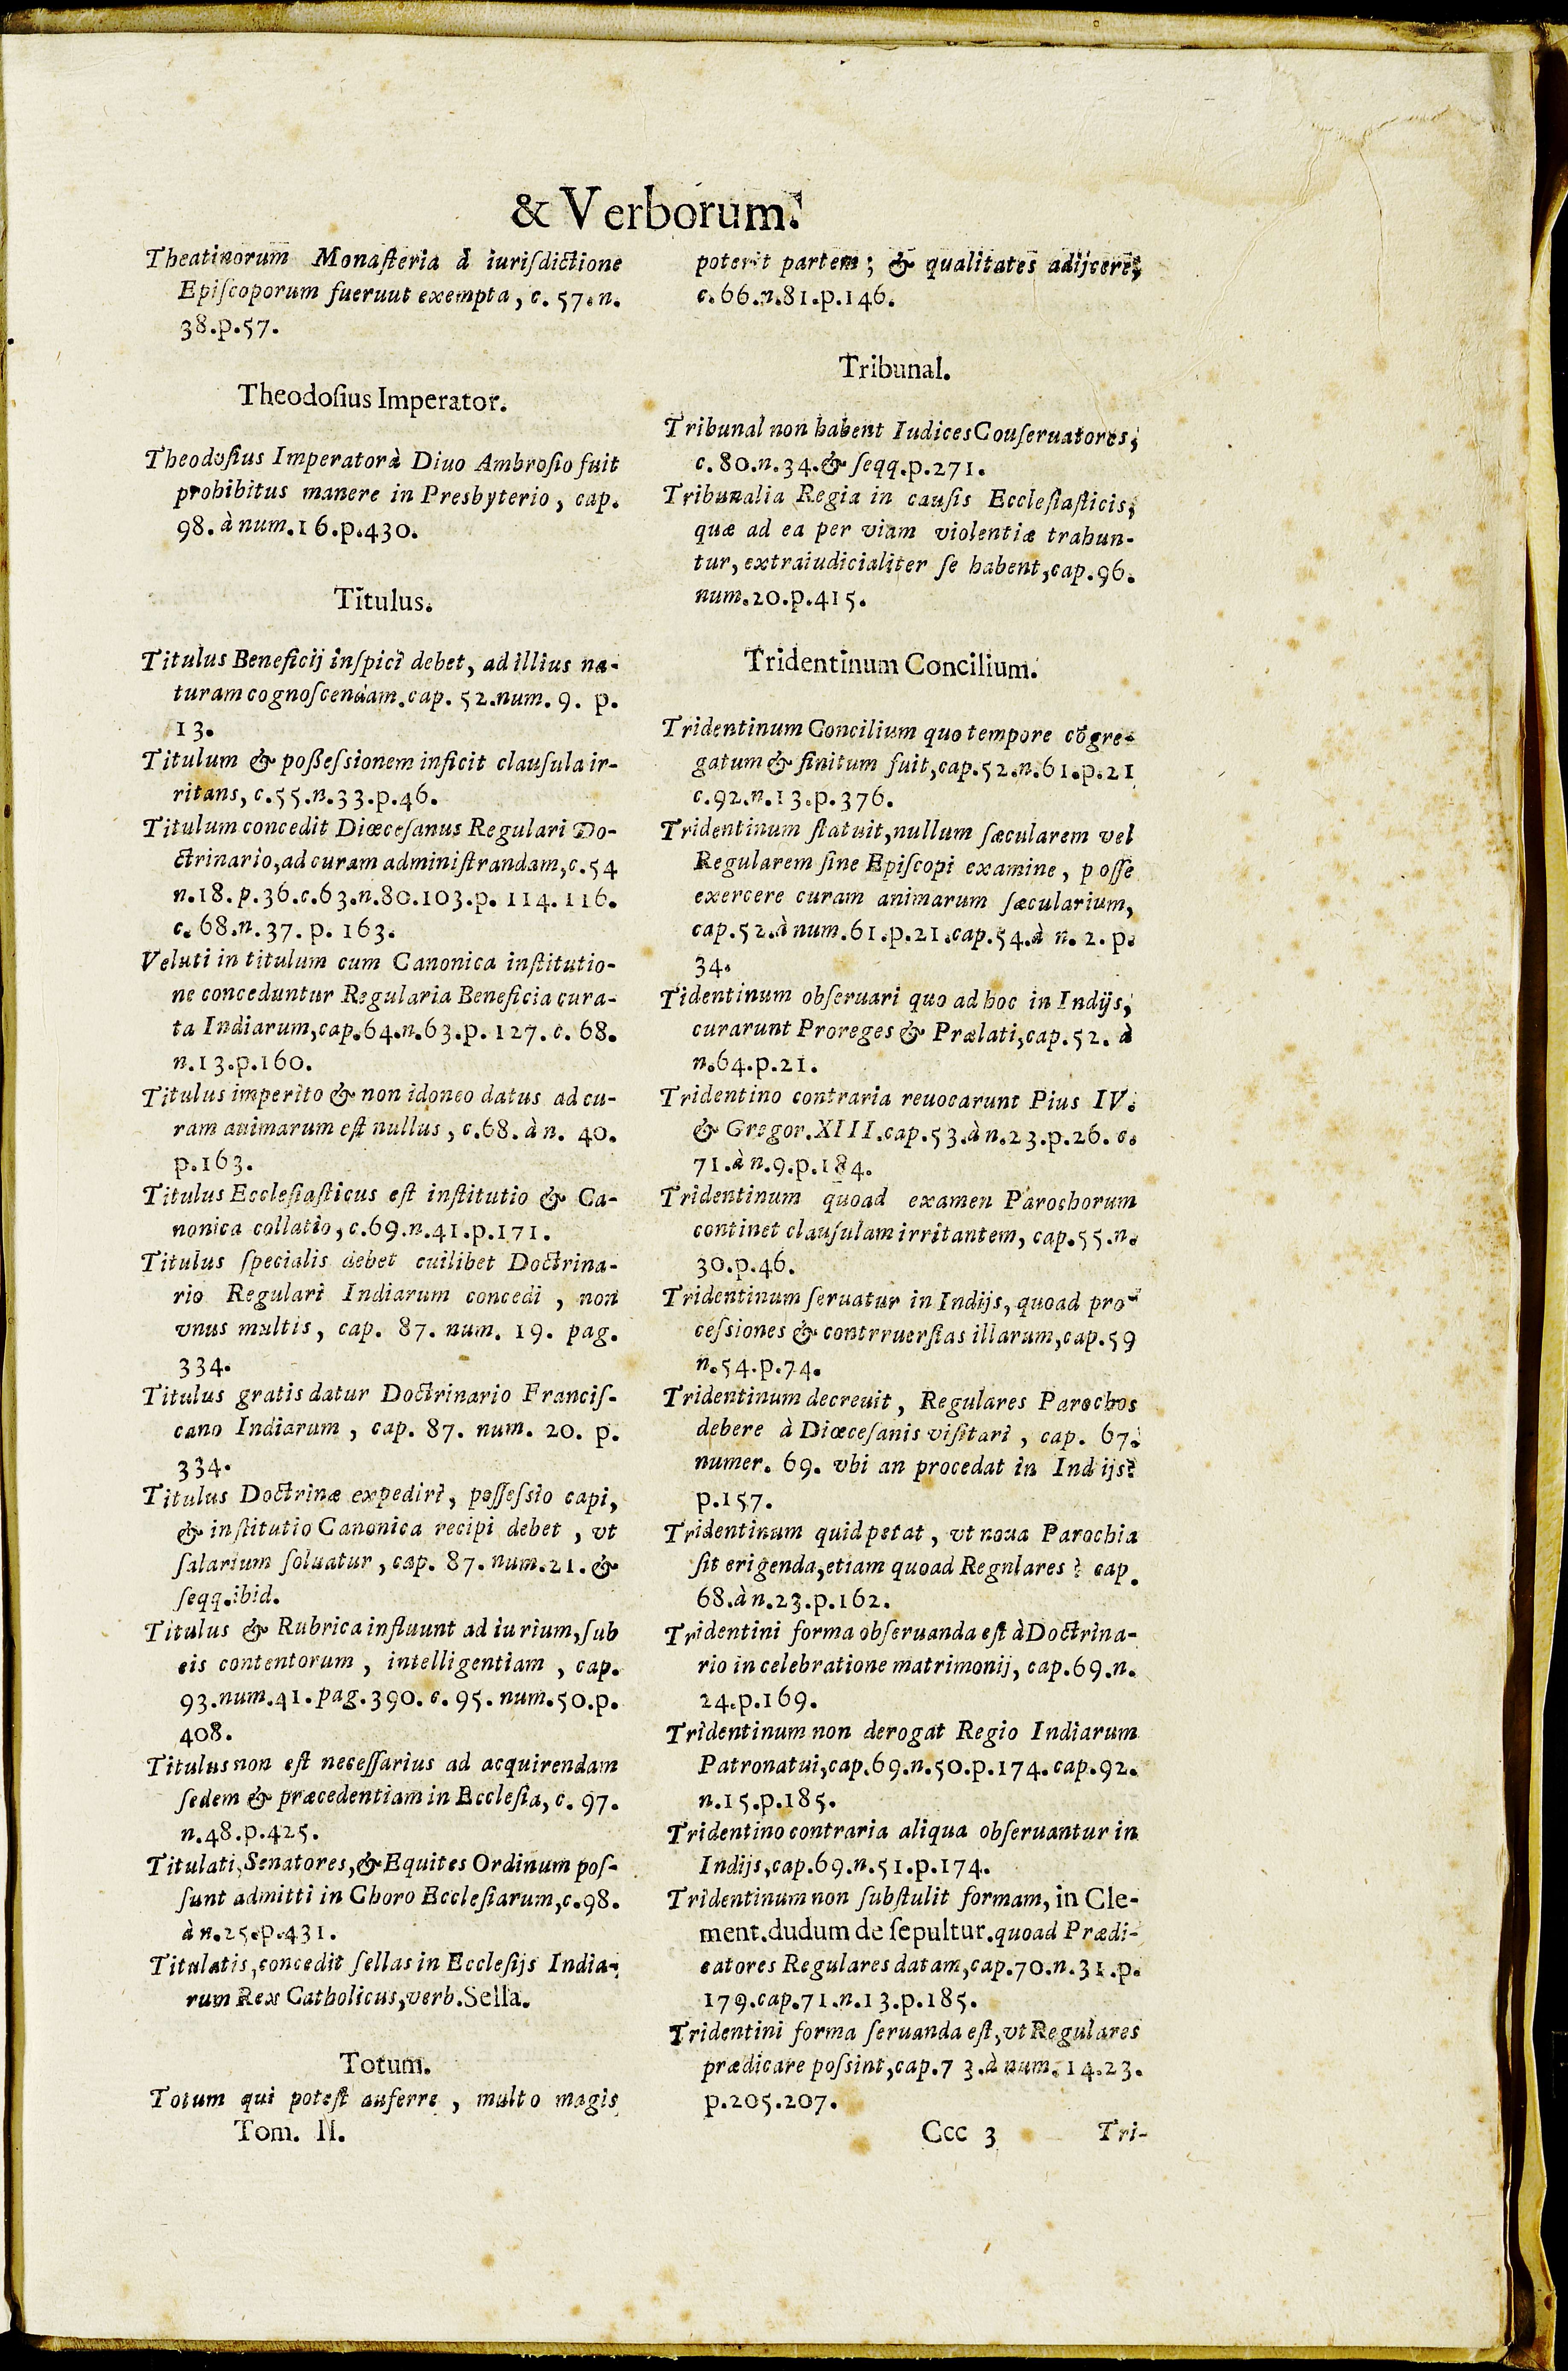 & Verborum.
Theatinorum Monaſteria à iuriſdictione
Epiſcoporum fueruut exempta, c. 57. n.
38.p.57.
Theodoſius Imperator.
Theodoſius Imperator à Diuo Ambroſio fuit
prohibitus manere in Presbyterio, cap.
98. à num.16.p.430.
Titulus.
Titulus Beneficij inſpici debet, ad illius na-
turam cognoſcendam.cap. 52.num. 9. p.
13.
Titulum & poßeſsionem inficit clauſula ir-
ritans, c.55.n.33.p.46.
Titulum concedit Diœceſanus Regulari Do-
ctrinario,ad curam adminiſtrandam,c.54
n.18. p.36.c.63.n.80.103.p. 114. 116.
c. 68.n. 37. p. 163.
Veluti in titulum cum Canonica inſtitutio-
ne conceduntur Regularia Beneficia cura-
ta Indiarum,cap.64.n.63.p. 127. c. 68.
n.13.p.160.
Titulus imperito & non idoneo datus ad cu-
ram auimarum eſt nullus, c.68. à n. 40.
p.163.
Titulus Eccleſiaſticus eſt inſtitutio & Ca-
nonica collatio, c.69.n.41.p.171.
Titulus ſpecialis debet cuilibet Doctrina-
rio Regulari Indiarum concedi, non
vnus multis, cap. 87. num. 19. pag.
334.
Titulus gratis datur Doctrinario Franciſ-
cano Indiarum, cap. 87. num. 20. p.
334.
Titulus Doctrinæ expediri, poſſeſsio capi,
& inſtitutio Canonica recipi debet, vt
ſalarium ſoluatur, cap. 87. num.21. &
ſeqq.ibid.
Titulus & Rubrica influunt ad iurium,ſub
eis contentorum, intelligentiam, cap.
93.num.41. pag.390. c. 95. num.50.p.
408.
Titulus non eſt neceſſarius ad acquirendam
ſedem & præcedentiam in Eccleſia, c. 97.
n.48.p.425.
Titulati, Senatores,& Equites Ordinum poſ-
ſunt admitti in Choro Eccleſiarum,c.98.
à n.25.p.431.
Titulatis,concedit ſellas in Eccleſijs India-
rum Rex Catholicus,verb.Sella.
Totum.
Totum qui poteſt auferre, multo magis
Tom. II.
poterit partem; & qualitates adijcere,
c.66.n.81.p.146.
Tribunal.
Tribunal non habent Iudices Couſeruatores,
c. 80.n. 34.& ſeqq.p.271.
Tribunalia Regia in cauſis Eccleſiaſticis,
quæ ad ea per viam violentiæ trahun-
tur, extraiudicialiter ſe habent,cap.96.
num.20.p.415.
Tridentinum Concilium.
Tridentinum Concilium quo tempore cõgre-
gatum & finitum fuit,cap.52.n.61.p.21
c.92.n.13.p.376.
Tridentinum ſtatuit,nullum ſæcularem vel
Regularem ſine Epiſcopi examine, poſſe
exercere curam animarum ſæcularium,
cap.52.à num.61.p.21.cap.54.à n. 2. p.
34.
Tidentinum obſeruari quo ad hoc in Indijs,
curarunt Proreges & Prælati,cap.52. à
n.64.p.21.
Tridentino contraria reuocarunt Pius IV.
& Gregor.XIII.cap.53.à n.23.p.26. c.
71.à n.9.p.184.
Tridentinum quoad examen Parochorum
continet clauſulam irritantem, cap.55.n.
30.p.46.
Tridentinum ſeruatur in Indijs, quoad pro-
ceſsiones & contrruerſias illarum,cap.59
n.54.p.74.
Tridentinum decreuit, Regulares Parochos
debere à Diœceſanis viſitari, cap. 67.
numer. 69. vbi an procedat in Indijs?
p.157.
Tridentinum quid petat, vt noua Parochia
ſit erigenda,etiam quoad Regnlares? cap.
68.à n.23.p.162.
Tridentini forma obſeruanda eſt à Doctrina-
rio in celebratione matrimonij, cap.69.n.
24.p.169.
Tridentinum non derogat Regio Indiarum
Patronatui,cap.69.n.50.p.174. cap.92.
n.15.p.185.
Tridentino contraria aliqua obſeruantur in
Indijs,cap.69.n.51.p.174.
Tridentinum non ſubſtulit formam, in Cle-
ment.dudum de ſepultur.quoad Prædi-
catores Regulares datam,cap.70.n.31.p.
179.cap.71.n.13.p.185.
Tridentini forma ſeruanda eſt,vt Regulares
prædicare poſsint,cap.7 3.à num.14.23.
p.205.207.
Ccc 3 Tri-